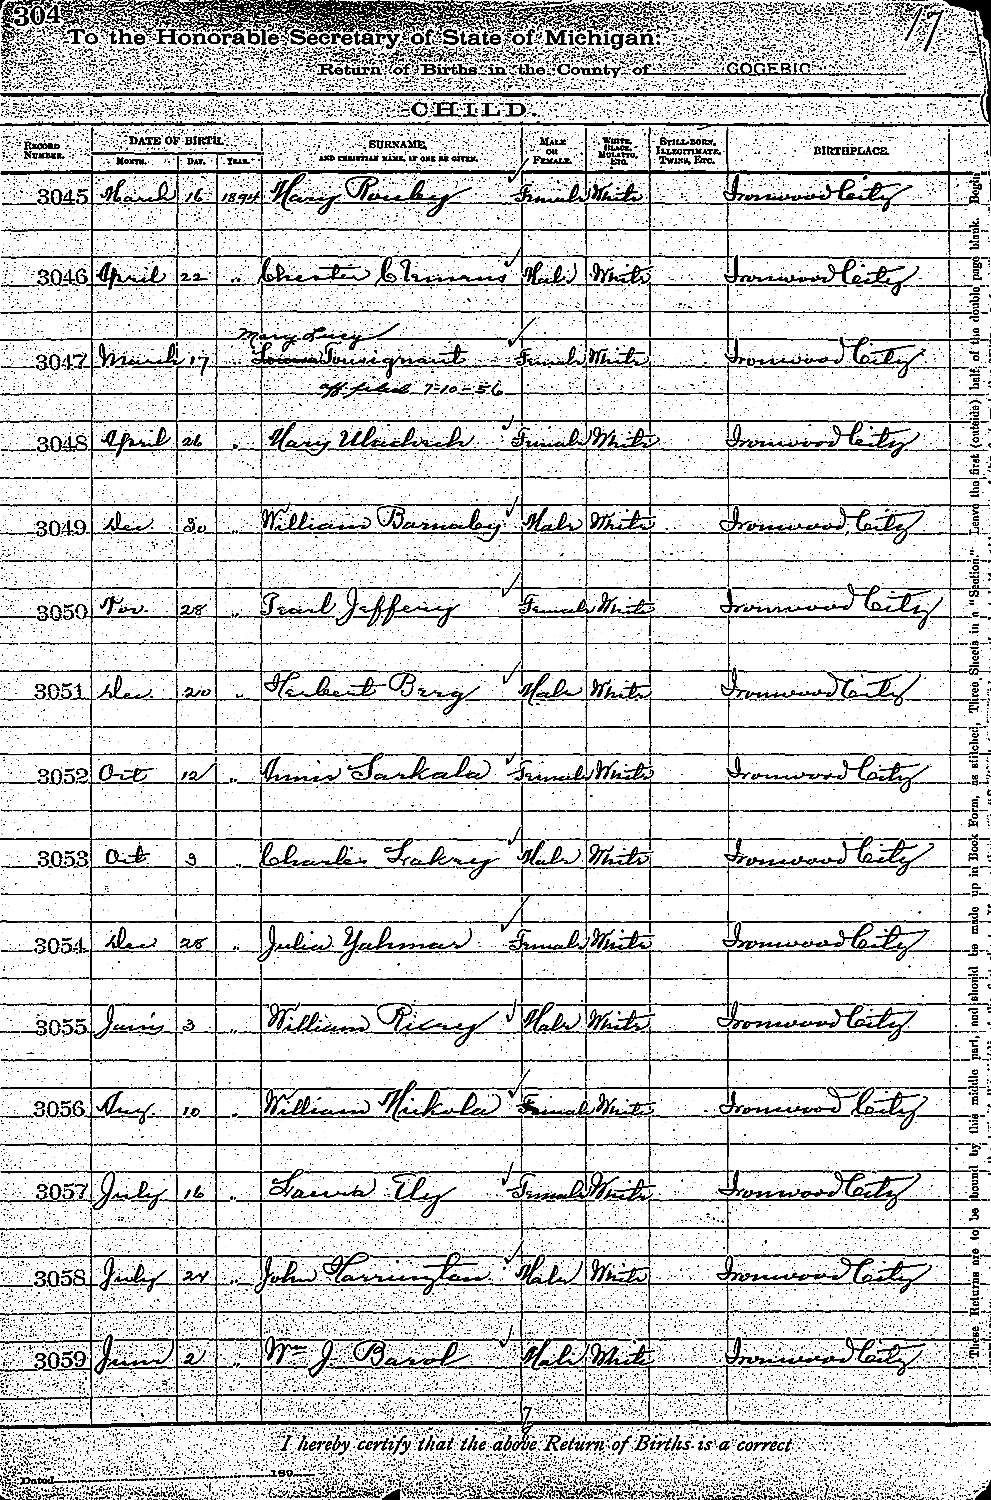 304
17
To the Honorable Secretary of State of Michigan:
Return of Births in the County of GOGEBIC
CHILD.
RECORD NUMBER. DATE OF BIRTH. MONTH. DAY. YEAR. SURNAME, AND CHRISTIAN NAME, IF ONE BE GIVEN. MALE OR FEMALE. WHITE, BLACK, MULATTO, ETC. STILL-BORN, ILLEGITIMATE, TWINS, ETC. BIRTHPLACE.
3045 March 16 1894 Mary Female White Ironwood City
3046 April 22 " Chester Clemens Male White Ironwood City
Mary Lucy
3047 March 17 Tousignant Female White Ironwood City
aff filed 7-10-56
3048 April 26 " Mary Female White Ironwood City
3049 Dec 30 " William Barnabey Male White Ironwood City
3050 Nov. 28 " Pearl Jeffery Female White Ironwood City
3051 Dec. 20 " Herbert Berg Male White Ironwood City
3052 Oct 12 " Sarkala Female White Ironwood City
3053 Oct 3 " Charles Male White Ironwood City
3054 Dec 28 " Julia Yahmar Female White Ironwood City
3055 3 " William Male White Ironwood City
3056 Aug. 10 " William Nickola Female White Ironwood City
3057 July 16 " Laura Ely Female White Ironwood City
3058 July 24 " John Harrington Male White Ironwood City
3059 June 2 " Wm J. Barol Male White Ironwood City
I hereby certify that the above Return of Births is a correct
Dated 189
These Returns are to be bound by this middle part, and should be made up in Book Form, as stitched, Three Sheets in a "Section." Leave the first (outside) half of the double page blank. Begin